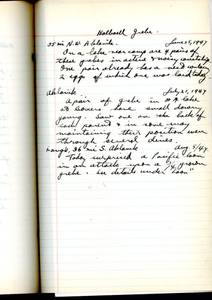 Holboell Grebe
35 mi N.W. Aklavik June 25, 1947
In a lake near camp are 4 pairs of
these grebes in active & noisy courtship
One pair already has a nest with
2 eggs of which one was laid today
Aklavik July 21, 1947
A pair of grebe in a lake
have small downy
young. Saw one on the back of
one parent & in some way
maintaining their position even
through several dives.
36 mi S. Aklavik Aug 4/47
Today surprised a Pacific loon
in an attack upon a ¾ grown
grebe. See details under "loon"